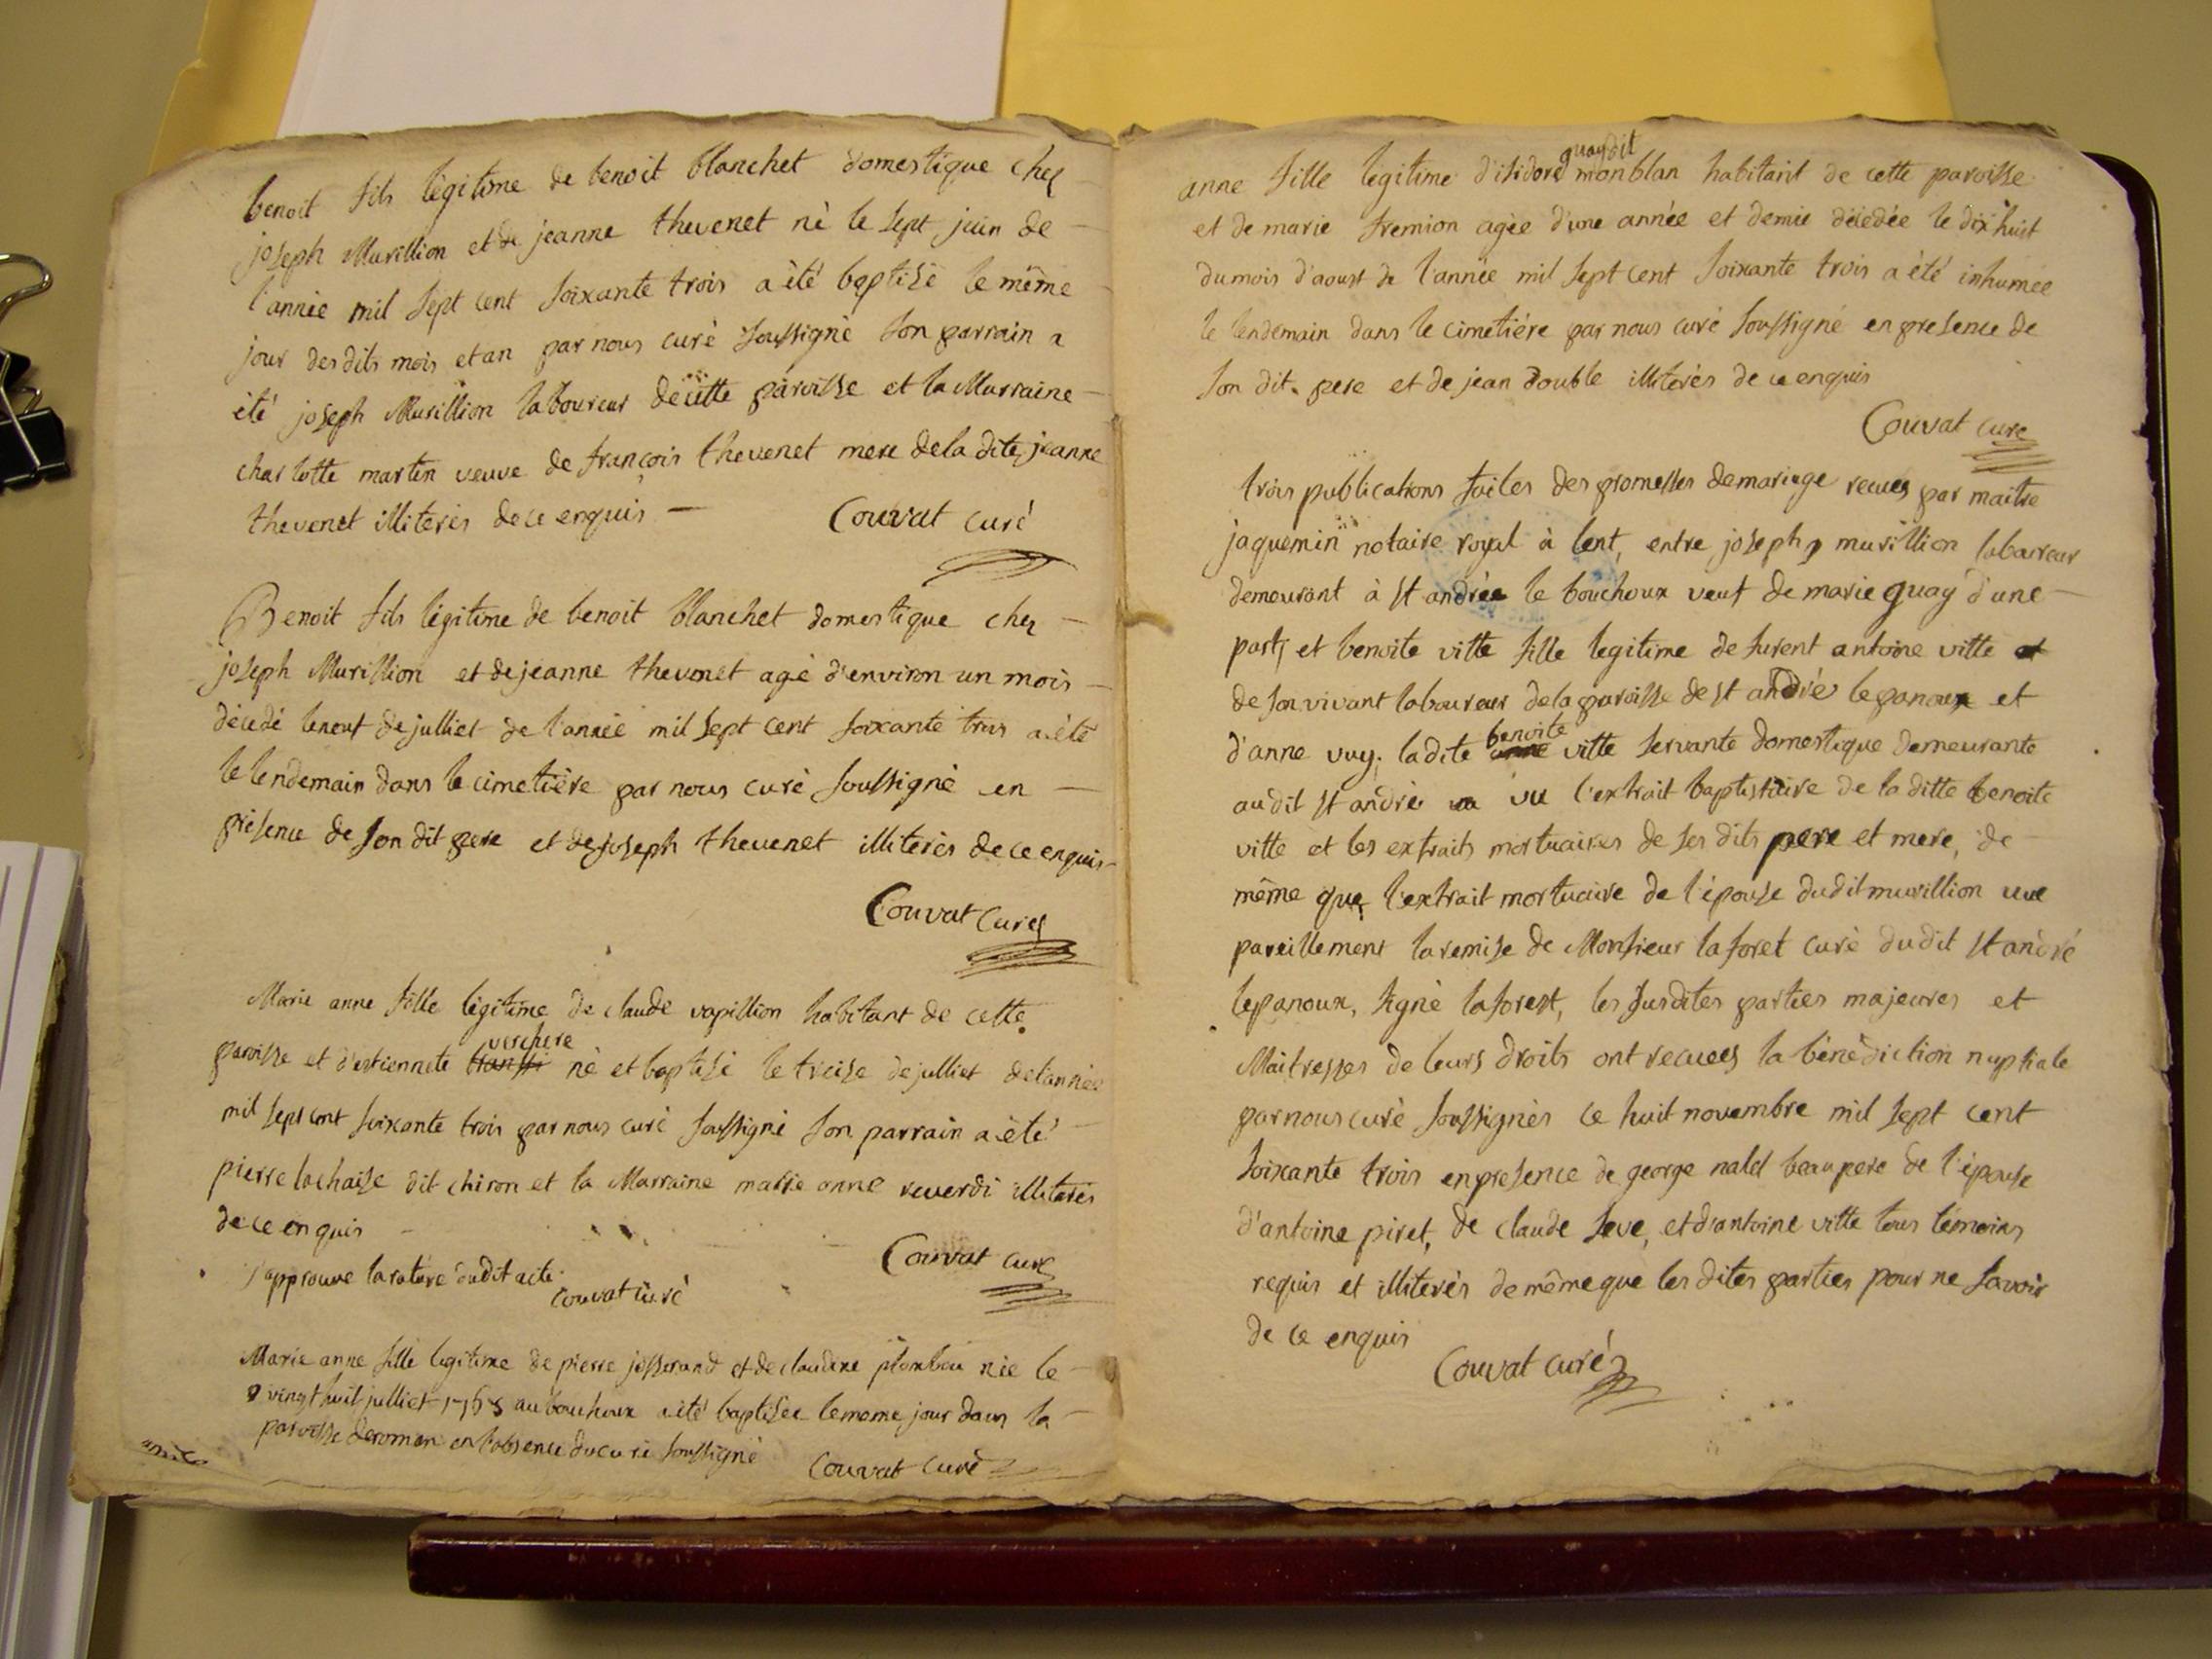 benoit fils légitime de benoit blanchet domestique chez
joseph Murillion et de jeanne thevenet né le sept juin de
l'année mil sept cent soixante trois a été baptisé le même
jour des dits mois et an par nous curé soussigné son parrain a
été joseph Murillion laboureur de cette paroisse et la Marraine
charlotte martin veuve de françois thevenet mere de la dite jeanne
thevenet illiterés de ce enquis — Couvat curé
Benoit fils légitime de benoit blanchet domestique chez
joseph Murillion et de jeanne thevenet agé d'environ un mois
décédé le neuf de julliet de l'année mil sept cent soixante trois a été
le lendemain dans le cimetière par nous curé soussigné en
présence de son dit pere et de joseph thevenet illiterés de ce enquis
Couvat curé
Marie anne fille légitime de claude vapillion habitant de cette
verchere
paroisse et d'estiennete né et baptisé le treise de julliet de l'année
mil sept cent soixante trois par nous curé soussigné son parrain a été
pierre lachaise dit chiron et la Marraine marie anne reverdi illiterés
de ce enquis
Couvat curé
j'approuve la rature dudit acte
couvat curé
Marie anne fille legitime de pierre josserand et de claudine née le
vingt huit julliet 1763 au bouchoux a été baptisée le meme jour dans la
paroisse de roman en l'absence du curé soussigné Couvat curé
quay dit
anne fille legitime d'isidore monblan habitant de cette paroisse
et de marie fremion agée d'une année et demie décedée le dix huit
du mois d'aoust de l'année mil sept cent soixante trois a été inhumée
le lendemain dans le cimetiére par nous curé soussigné en presence de
son dit pere et de jean double illiterés de ce enquis
Couvat curé
trois publications faites des promesses de mariage recues par maitre
jaquemin notaire royal à lent, entre joseph murillion laboureur
demeurant à st andrée le bouchoux veuf de marie quay d'une
part, et benoite vitte fille legitime de furent antoine vitte et
de son vivant laboureur de la paroisse de st andré le panoux et
benoite
d'anne vuy. la dite anne vitte servante domestique demeurante
au dit st andré vu l'extrait baptistaire de la ditte benoite
vitte et les extraits mortuaires de ses dits pere et mere, de
même que l'extrait mortuaire de l'épouse dudit murillion vue
pareillement la remise de Monsieur laforet curé dudit st andré
lepanoux, signé laforest, les susdites parties majeures et
Maitresses de leurs droits ont recuees la bénédiction nuptiale
par nous curé soussignés ce huit novembre mil sept cent
soixante trois en presence de george beaupere de l'épouse
d'antoine piret, de claude seve, et d'antoine vitte tous témoins
requis et illiterés de même que les dites parties pour ne savoir
de ce enquis
Couvat curé